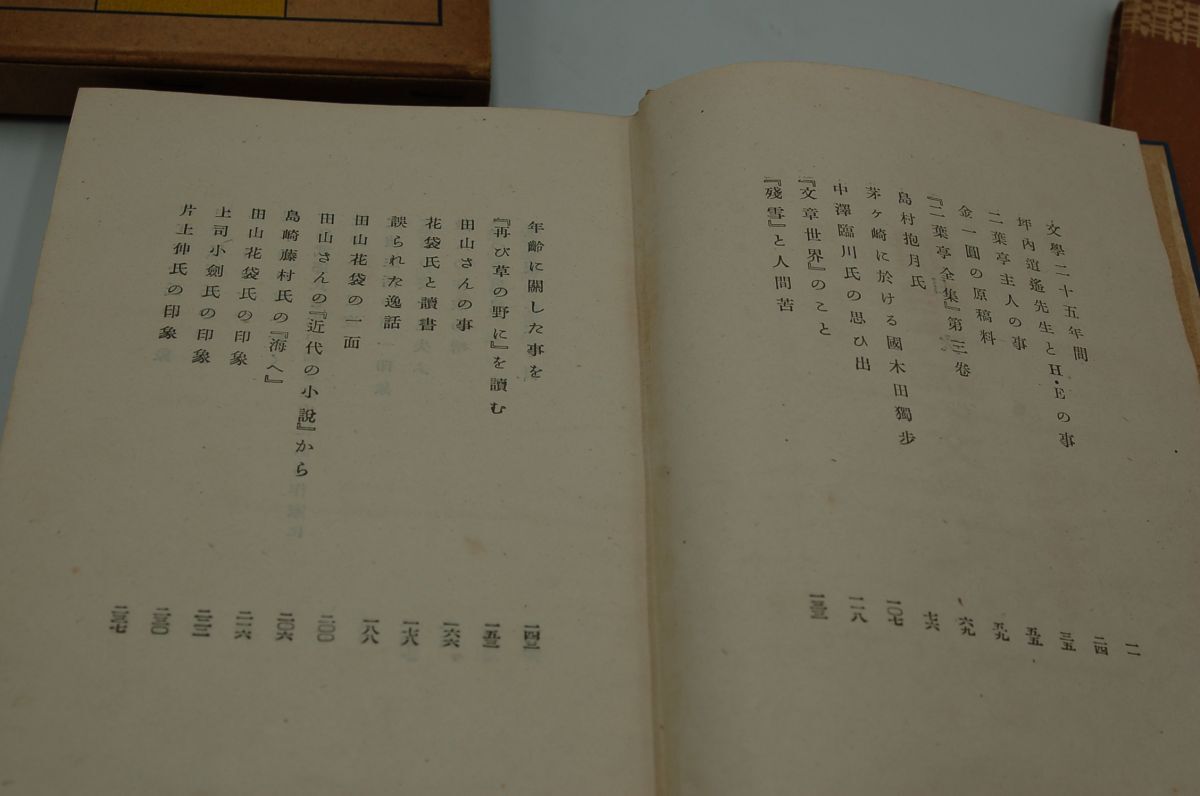 文學二十五年間 一一
坪内逍遙先生とH・Eの事 二四
二葉亭主人の事 三五
金一圓の原稿料 五五
『二葉亭全集』第三卷 五九
島村抱月氏 六九
茅ヶ崎に於ける國木田獨步 七六
中澤臨川氏の思ひ出 一〇七
『文章世界』のこと 一一八
『殘雪』と人間苦 一三三
年齡に關した事を 一四三
『再び草の野に』を讀む 一五三
田山さんの事 一六六
花袋氏と讀書 一七六
誤られた逸話 一八八
田山花袋の一面 二〇〇
田山さんの『近代の小說』から 二〇六
島崎藤村氏の『海へ』 二一六
田山花袋氏の印象 二二三
上司小劍氏の印象 二三〇
片上伸氏の印象 二三七